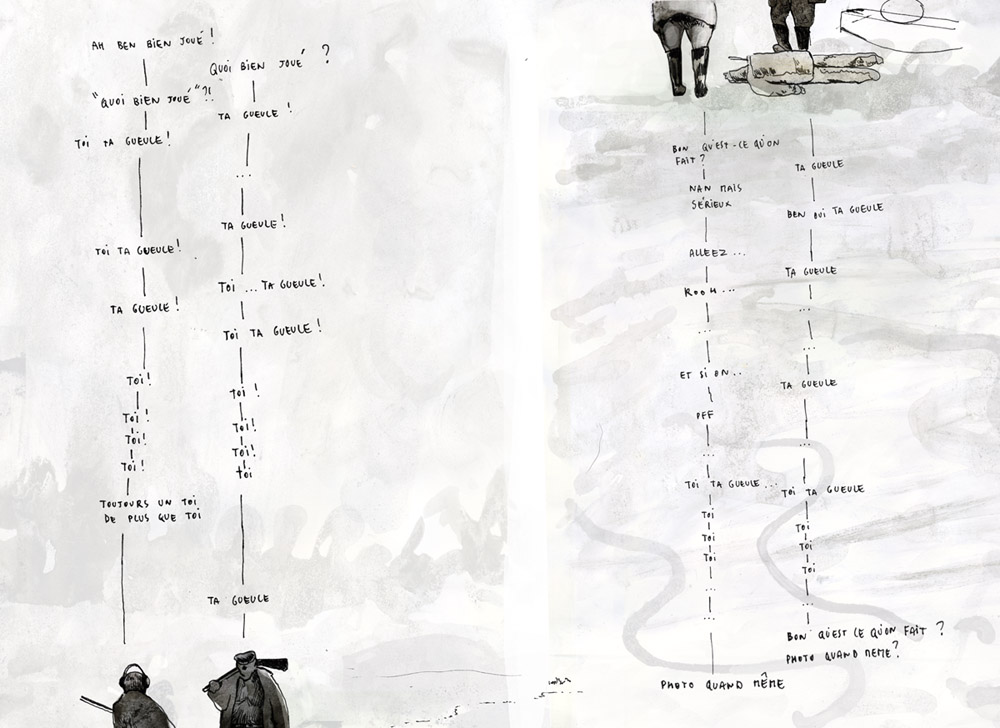 AH BEN BIEN JOUÉ !
QUOI BIEN JOUÉ ?
"QUOI BIEN JOUÉ"?!
TA GUEULE !
TOI TA GUEULE !
...
TA GUEULE !
TOI TA GUEULE !
TOI ... TA GUEULE !
TA GUEULE !
TOI TA GUEULE !
TOI !
TOI !
TOI !
TOI !
TOI !
TOI !
TOI !
TOI
TOUJOURS UN TOI
DE PLUS QUE TOI
TA GUEULE
BON QU'EST-CE QU'ON
FAIT ?
TA GUEULE
NAN MAIS
SÉRIEUX
BEN OUI TA GUEULE
ALLEEZ ...
TA GUEULE
ROOH ...
...
...
...
ET SI ON ..
TA GUEULE
PFF
...
...
TOI TA GUEULE ...
TOI TA GUEULE
TOI
TOI
TOI
TOI
TOI
TOI
...
...
...
BON QU'EST CE QU'ON FAIT ?
PHOTO QUAND MEME ?
PHOTO QUAND MÊME